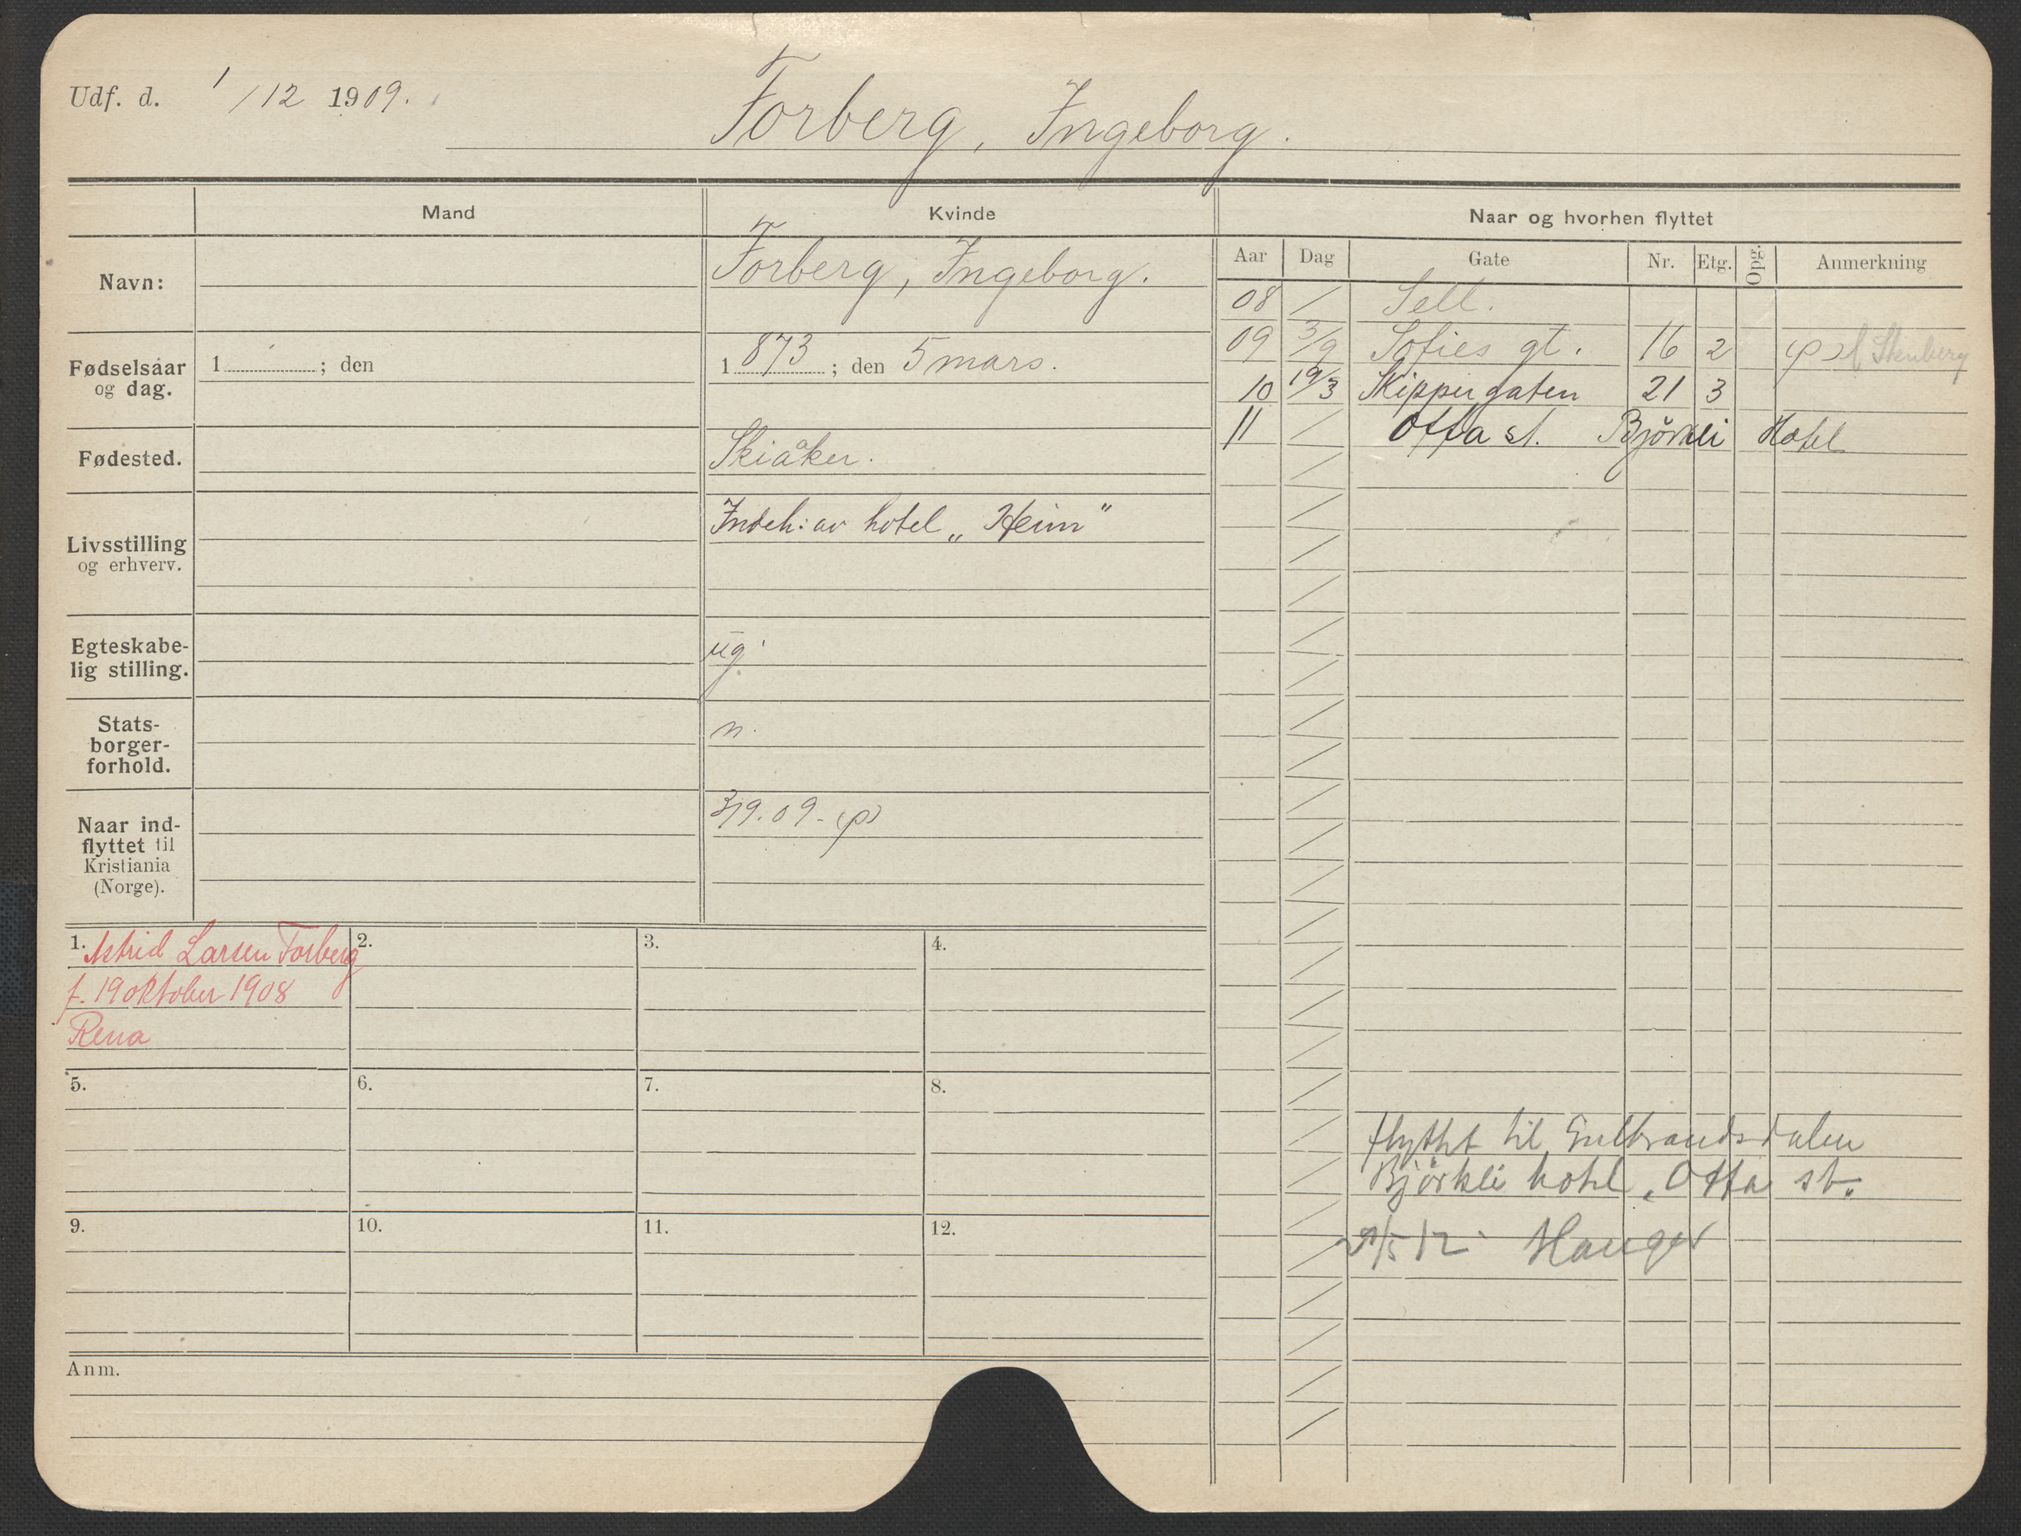 Udf. d. 1/12 1909.
Forberg, Ingeborg.
Mand
Kvinde
Naar og hvorhen flyttet
Aar Dag Gate Nr. Etg. Opg. Anmerkning
Navn:
Forberg, Ingeborg.
08 / Sell.
09 3/9 Sofies gt. 16 2 (p) Stenberg
10 19/3 Skippergaten 21 3
11 / Otta st. Björkli Hotel
Fødselsaar
og dag.
1 ; den
1873 ; den 5 mars.
Fødested.
Skiåker.
Livsstilling
og erhverv.
Indeh: av hotel „Heim"
Egteskabe-
lig stilling.
ug.
Stats-
borger-
forhold.
n.
Naar ind-
flyttet til
Kristiania
(Norge).
3/9.09. (p)
1. Astrid Larsen Forberg
f. 19 oktober 1908
Rena
2.
3.
4.
5.
6.
7.
8.
9.
10.
11.
12.
flyttet til Gulbrandsdalen
Björkli hotel, Otta st.
29/5 12. Hauger
Anm.